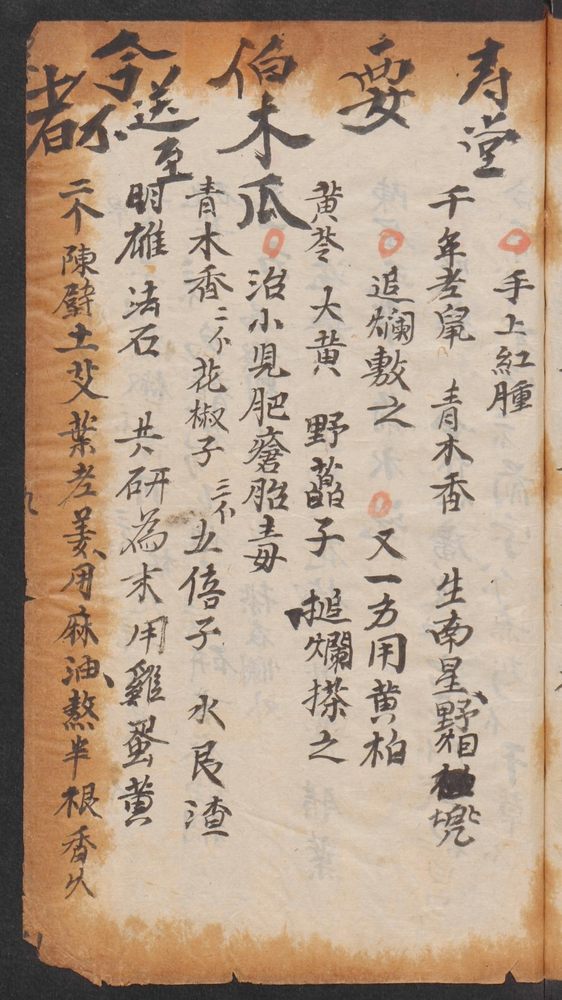 寿堂
要
伯木瓜
令送至
者不
手上紅腫
千年老鼠 青木香 生南星 野 兠
追爛敷之 又一方用黄柏
黄芩 大黄 野 子 搥爛搽之
治小児肥瘡胎毒
青木香二个花椒子三个五倍子 水艮渣
明雄 石 共研為末用雞蛋黄
二个陳壁土艾葉老姜用麻油熬半根香久